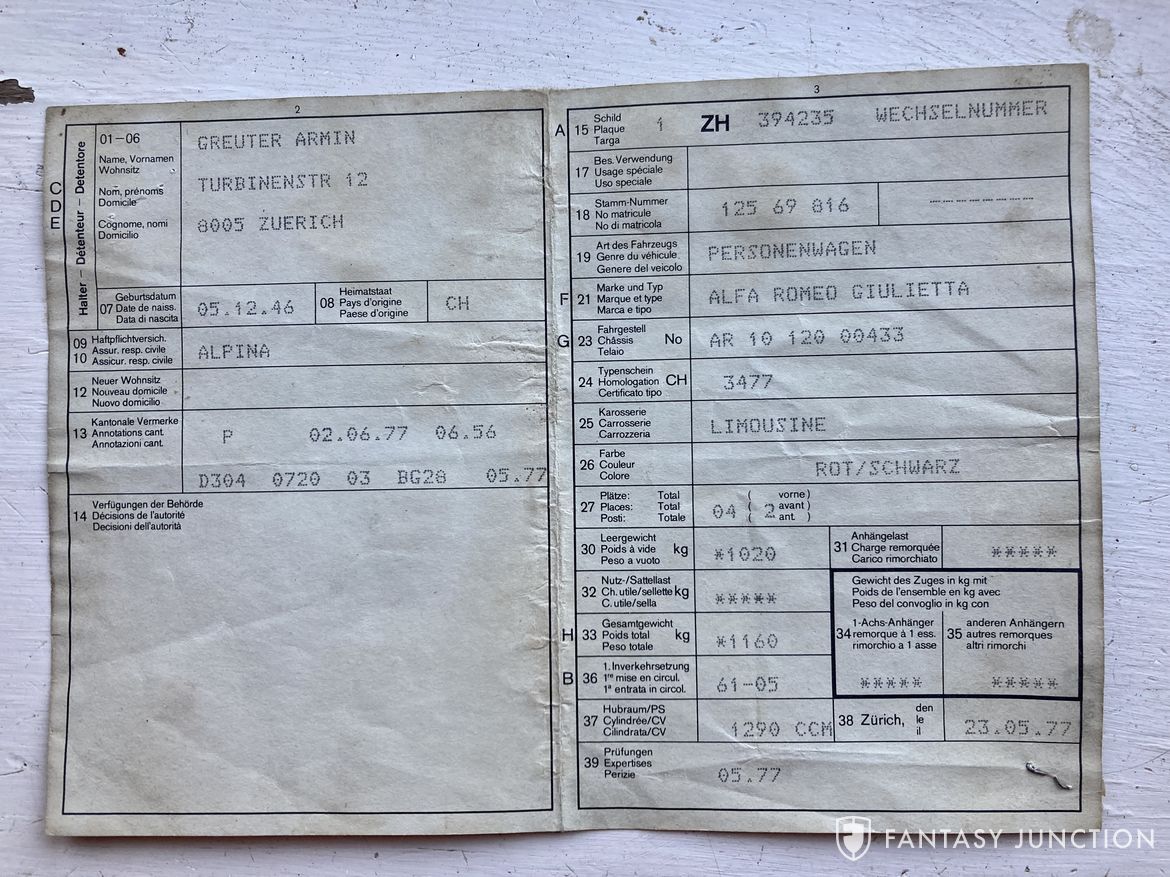 2
C
D
E
Halter – Détenteur – Detentore
01–06
Name, Vornamen
Wohnsitz
Nom, prénoms
Domicile
Cognome, nomi
Domicilio
GREUTER ARMIN
TURBINENSTR 12
8005 ZUERICH
07 Geburtsdatum
Date de naiss.
Data di nascita
05.12.46
08 Heimatstaat
Pays d'origine
Paese d'origine
CH
09 Haftpflichtversich.
Assur. resp. civile
10 Assicur. resp. civile
ALPINA
12 Neuer Wohnsitz
Nouveau domicile
Nuovo domicilio
13 Kantonale Vermerke
Annotations cant.
Annotazioni cant.
P 02.06.77 06.56
D304 0720 03 BG28 05.77
14 Verfügungen der Behörde
Décisions de l'autorité
Decisioni dell'autorità
3
A 15 Schild
Plaque
Targa
1 ZH 394235 WECHSELNUMMER
17 Bes. Verwendung
Usage spéciale
Uso speciale
18 Stamm-Nummer
No matricule
No di matricola
125 69 816
19 Art des Fahrzeugs
Genre du véhicule
Genere del veicolo
PERSONENWAGEN
F 21 Marke und Typ
Marque et type
Marca e tipo
ALFA ROMEO GIULIETTA
G 23 Fahrgestell
Châssis No
Telaio
AR 10 120 00433
24 Typenschein
Homologation CH
Certificato tipo
3477
25 Karosserie
Carrosserie
Carrozzeria
LIMOUSINE
26 Farbe
Couleur
Colore
ROT/SCHWARZ
27 Plätze: Total ( vorne )
Places: Total ( avant )
Posti: Totale ( ant. )
04 2
30 Leergewicht
Poids à vide kg
Peso a vuoto
*1020
31 Anhängelast
Charge remorquée
Carico rimorchiato
*****
32 Nutz-/Sattellast
Ch. utile/sellette kg
C. utile/sella
*****
Gewicht des Zuges in kg mit
Poids de l'ensemble en kg avec
Peso del convoglio in kg con
H 33 Gesamtgewicht
Poids total kg
Peso totale
*1160
34 1-Achs-Anhänger
remorque à 1 ess.
rimorchio a 1 asse
*****
35 anderen Anhängern
autres remorques
altri rimorchi
*****
B 36 1. Inverkehrsetzung
1re mise en circul.
1ª entrata in circol.
61-05
37 Hubraum/PS
Cylindrée/CV
Cilindrata/CV
1290 CCM
38 Zürich, den
le
il
23.05.77
39 Prüfungen
Expertises
Perizie
05.77
FANTASY JUNCTION